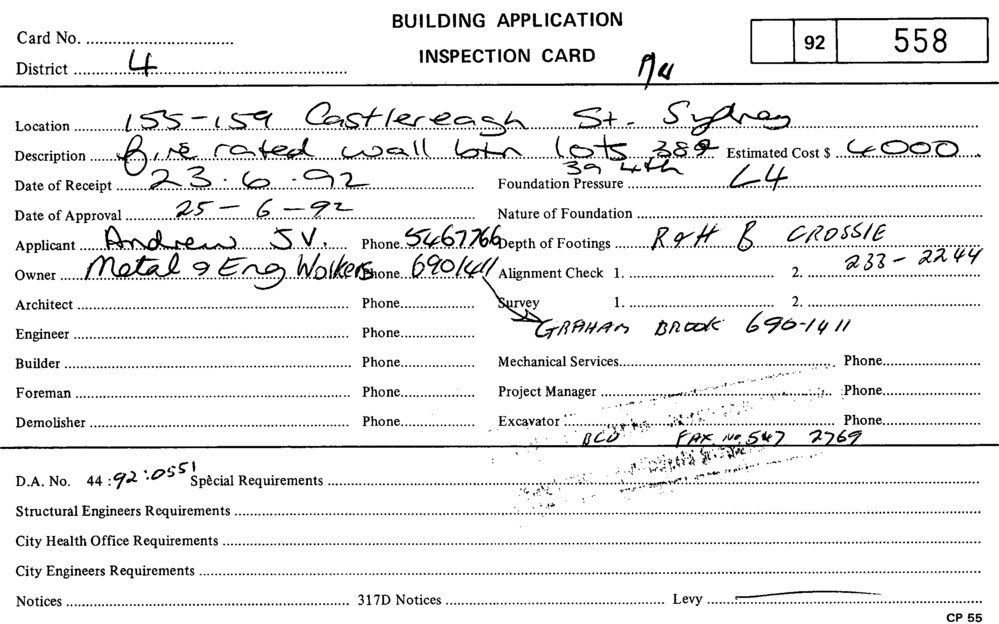 BUILDING APPLICATION
INSPECTION CARD
Card No.
District 4
92 558
Location 155-159 Castlereagh St. Sydney
Description fire rated wall btn lots 38& Estimated Cost $ 4000.
39 4th
Date of Receipt 23.6.92 Foundation Pressure L4
Date of Approval 25-6-92 Nature of Foundation
Applicant Andrew J.V. Phone 5467766 Depth of Footings R&H B CROSSIE
Owner Metal & Eng Workers Phone 6901411 Alignment Check 1. 2. 233-2244
Architect Phone Survey 1. 2.
Engineer Phone GRAHAM BROOK 690-1411
Builder Phone Mechanical Services Phone
Foreman Phone Project Manager Phone
Demolisher Phone Excavator Phone
FAX NO. 547 2769
D.A. No. 44 :92:0551 Special Requirements
Structural Engineers Requirements
City Health Office Requirements
City Engineers Requirements
Notices 317D Notices Levy
CP 55